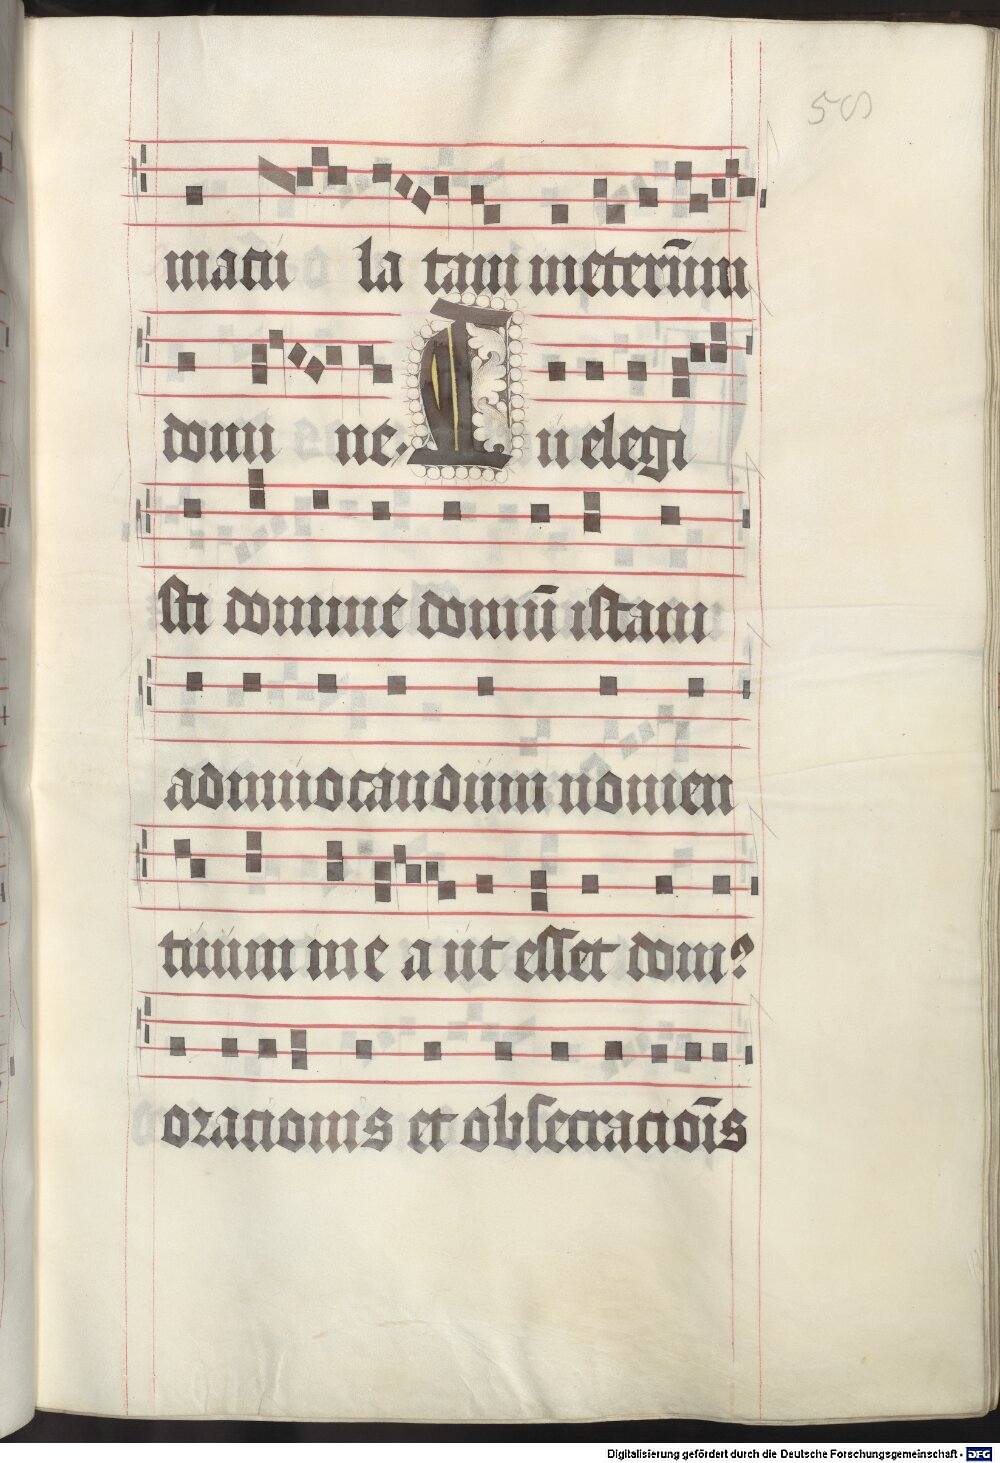 50
macu la tam in eternū
domi ne. Tu elegi
sti domine domū istam
ad invocandum nomen
tuum in e a ut esset dom9
oracionis et obsecraciōis
Digitalisierung gefördert durch die Deutsche Forschungsgemeinschaft - DFG